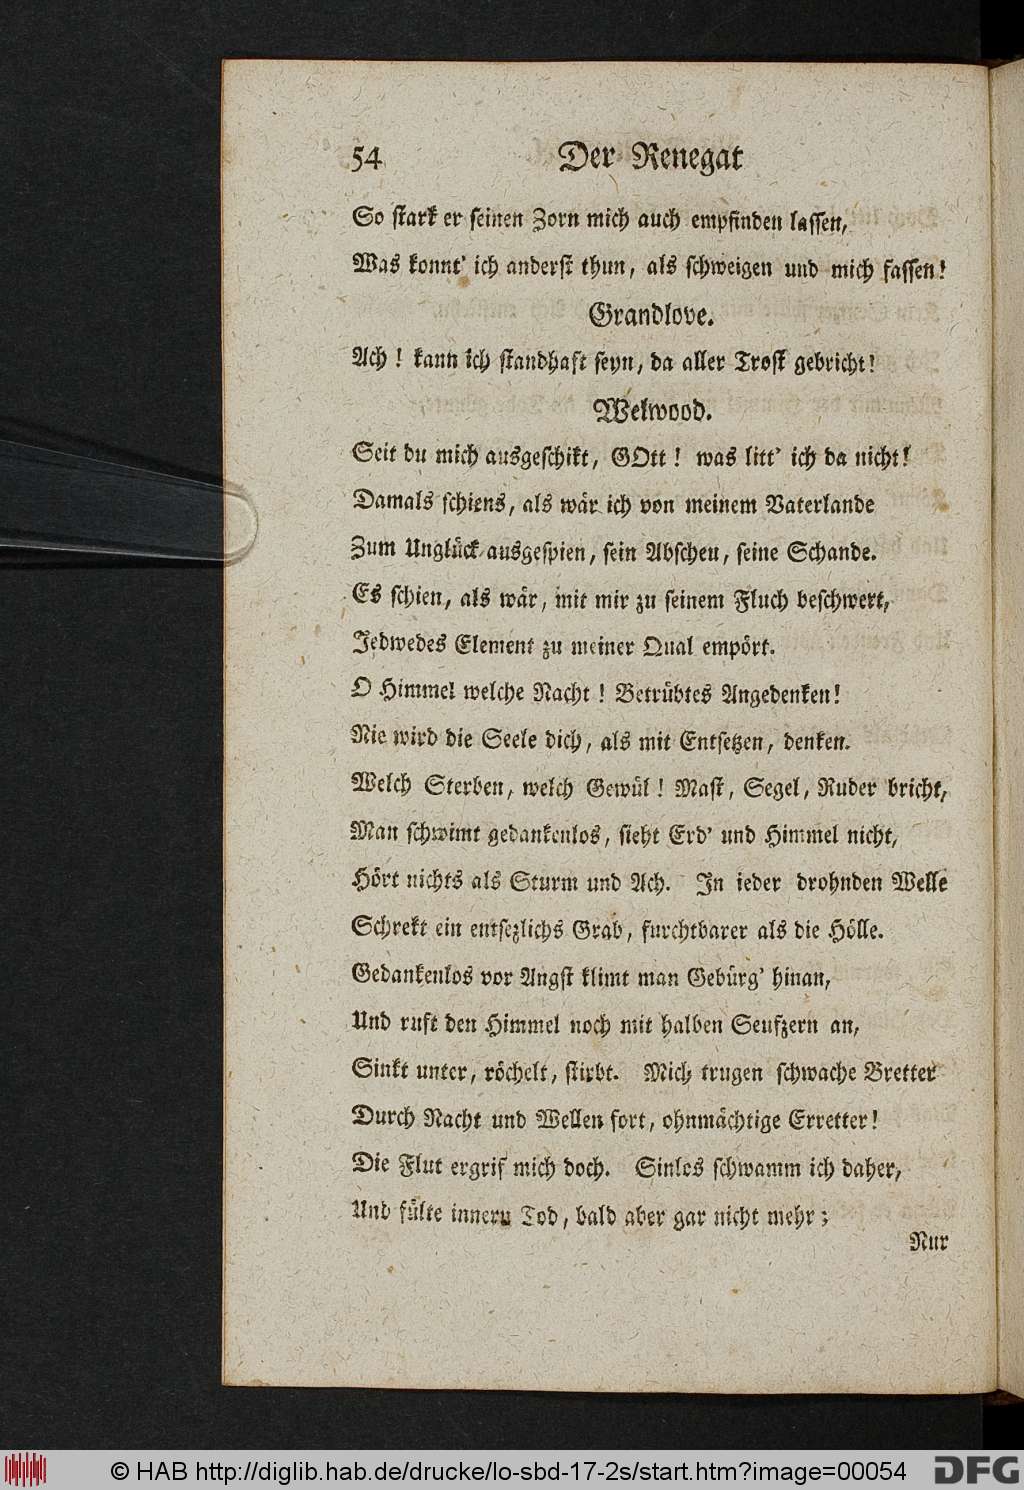 54 Der Renegat
So stark er seinen Zorn mich auch empfinden lassen,
Was konnt' ich anderst thun, als schweigen und mich fassen!
Grandlove.
Ach! kann ich standhaft seyn, da aller Trost gebricht!
Welwood.
Seit du mich ausgeschikt, GOtt! was litt' ich da nicht!
Damals schiens, als wär ich von meinem Vaterlande
Zum Unglück ausgespien, sein Abscheu, seine Schande.
Es schien, als wär, mit mir zu seinem Fluch beschwert,
Jedwedes Element zu meiner Qual empört.
O Himmel welche Nacht! Betrübtes Angedenken!
Nie wird die Seele dich, als mit Entsetzen, denken.
Welch Sterben, welch Gewül! Mast, Segel, Ruder bricht,
Man schwimt gedankenlos, sieht Erd' und Himmel nicht,
Hört nichts als Sturm und Ach. In jeder drohnden Welle
Schrekt ein entsezlichs Grab, furchtbarer als die Hölle.
Gedankenlos vor Angst klimt man Gebürg' hinan,
Und ruft den Himmel noch mit halben Seufzern an,
Sinkt unter, röchelt, stirbt. Mich trugen schwache Bretter
Durch Nacht und Wellen fort, ohnmächtige Erretter!
Die Flut ergrif mich doch. Sinlos schwamm ich daher,
Und fülte innern Tod, bald aber gar nicht mehr;
Nur
© HAB http://diglib.hab.de/drucke/lo-sbd-17-2s/start.htm?image=00054 DFG